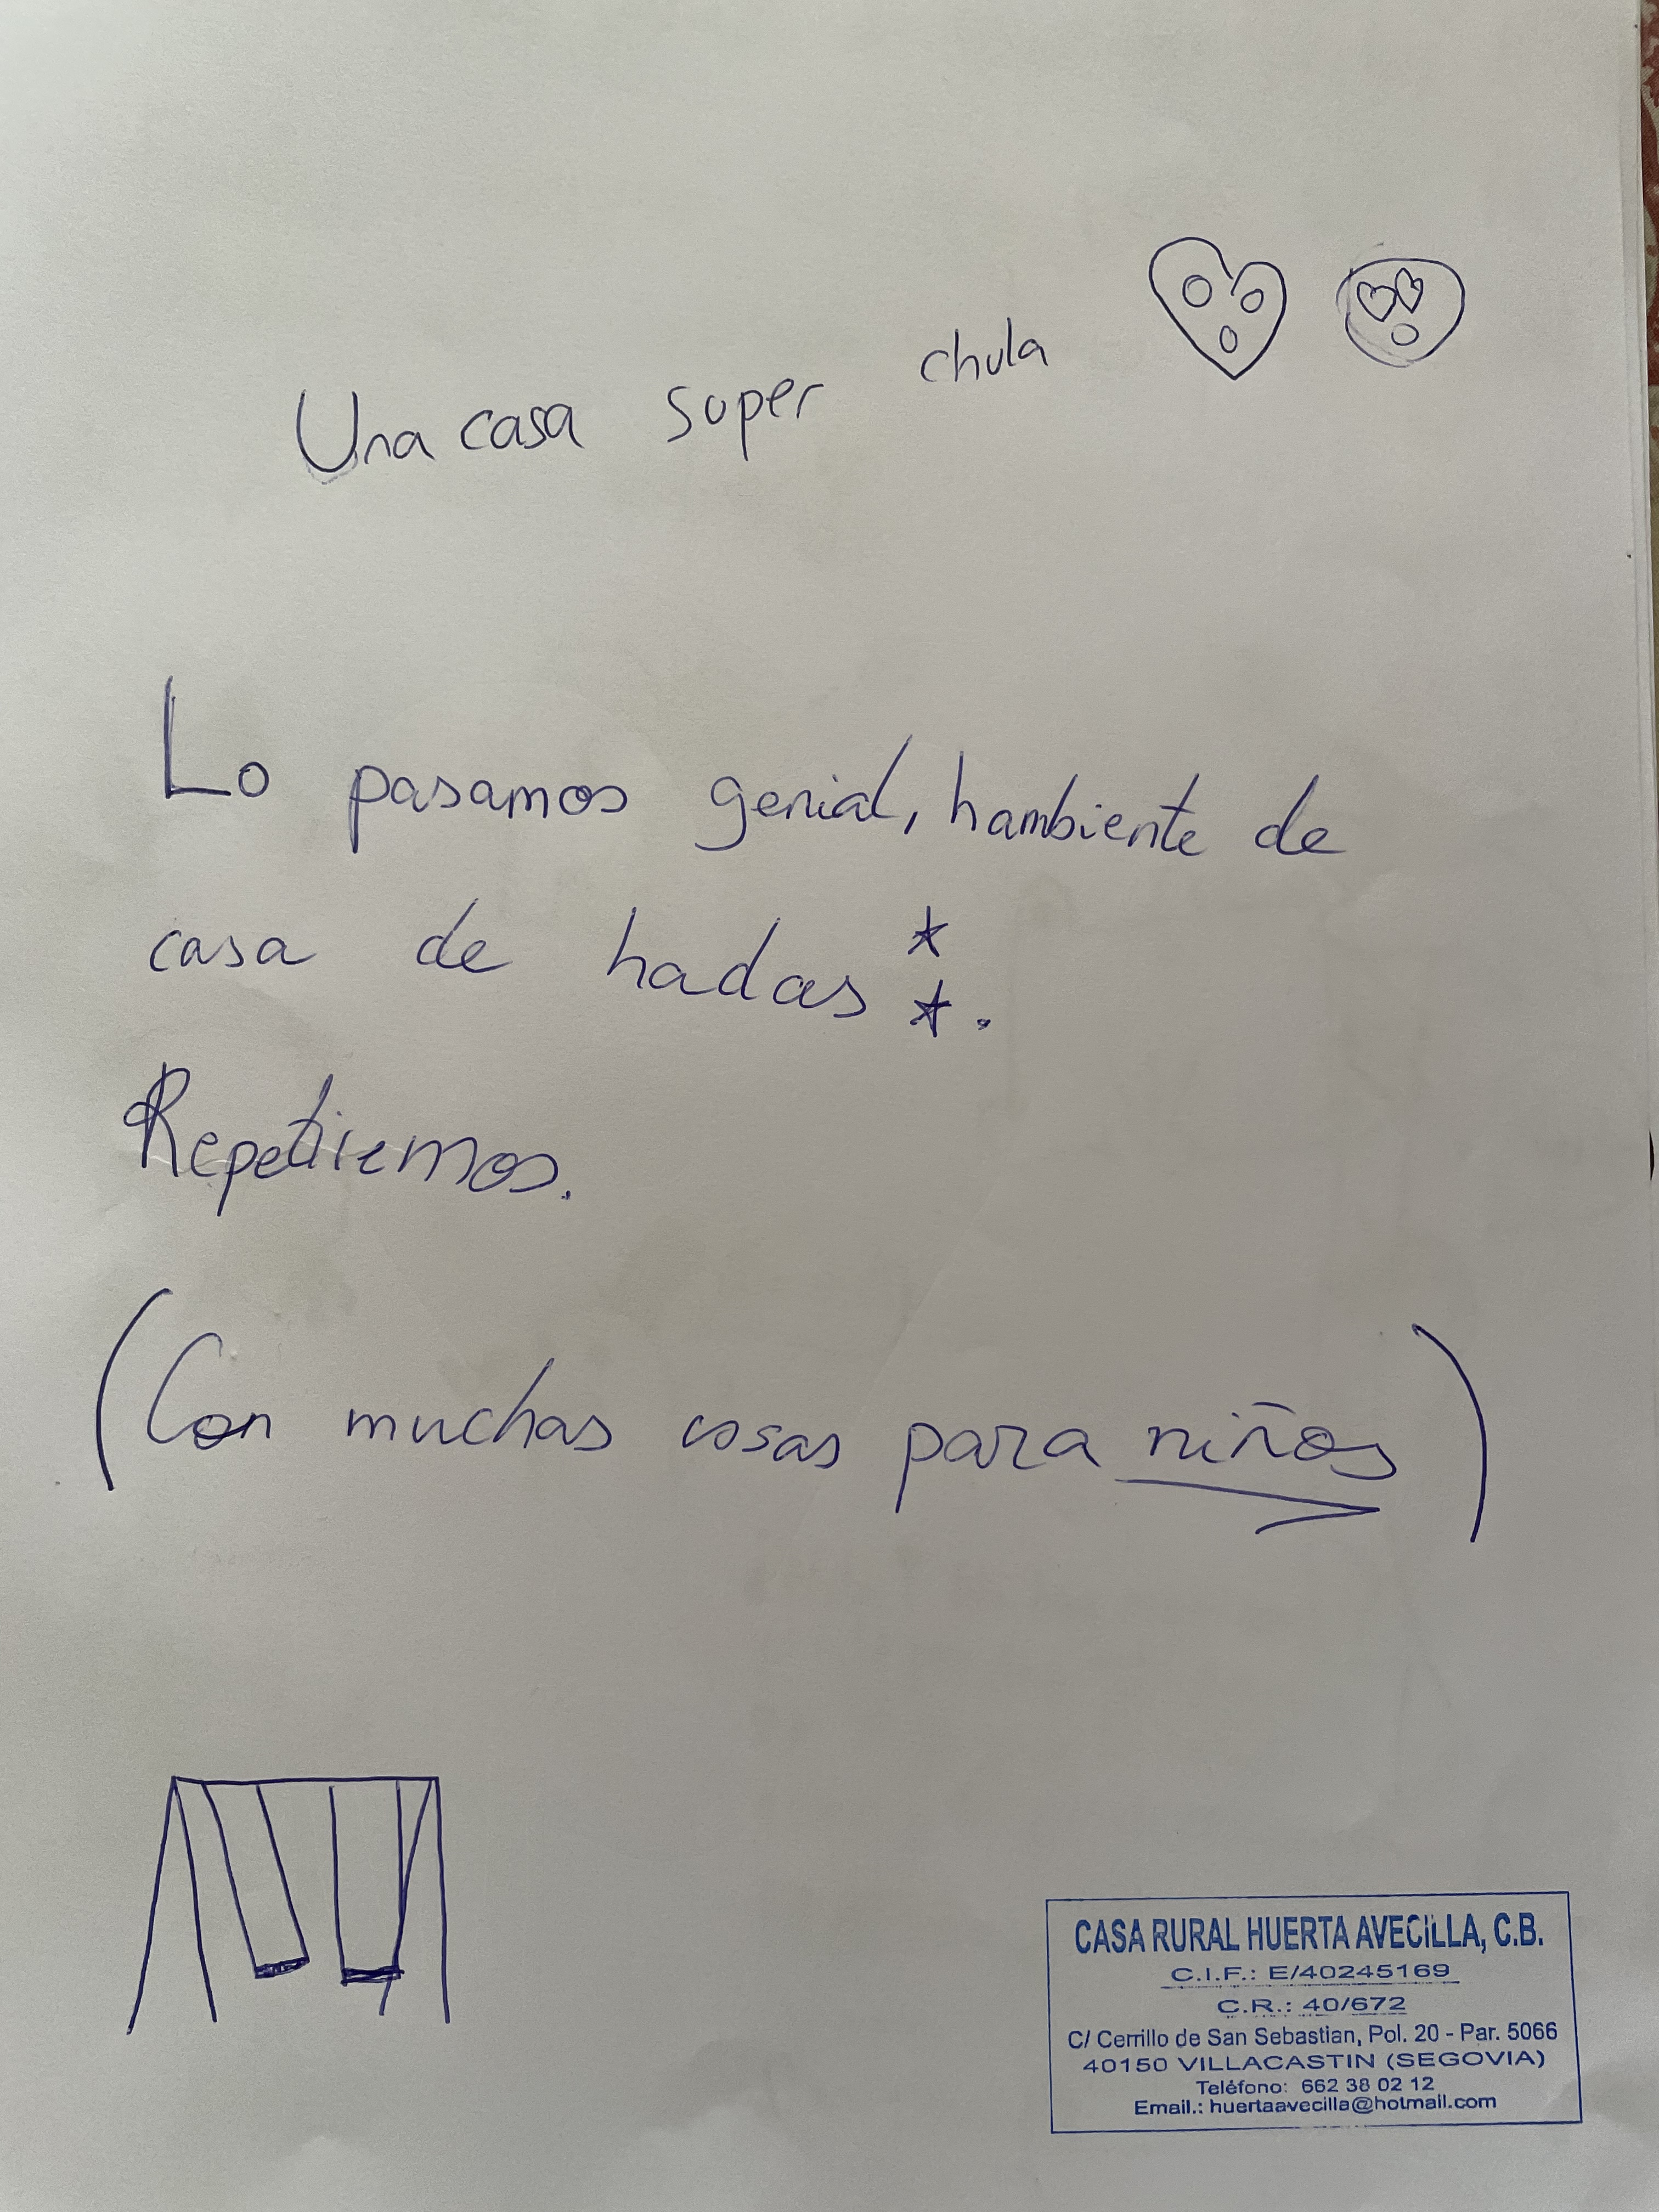 Una casa super chula
Lo pasamos genial, hambiente de
casa de hadas .
Repetiremos.
(Con muchas cosas para niños)
CASA RURAL HUERTA AVECILLA, C.B.
C.I.F.: E/40245169
C.R.: 40/672
C/ Cerrillo de San Sebastian, Pol. 20 - Par. 5066
40150 VILLACASTIN (SEGOVIA)
Teléfono: 662 38 02 12
Email.: huertaavecilla@hotmail.com